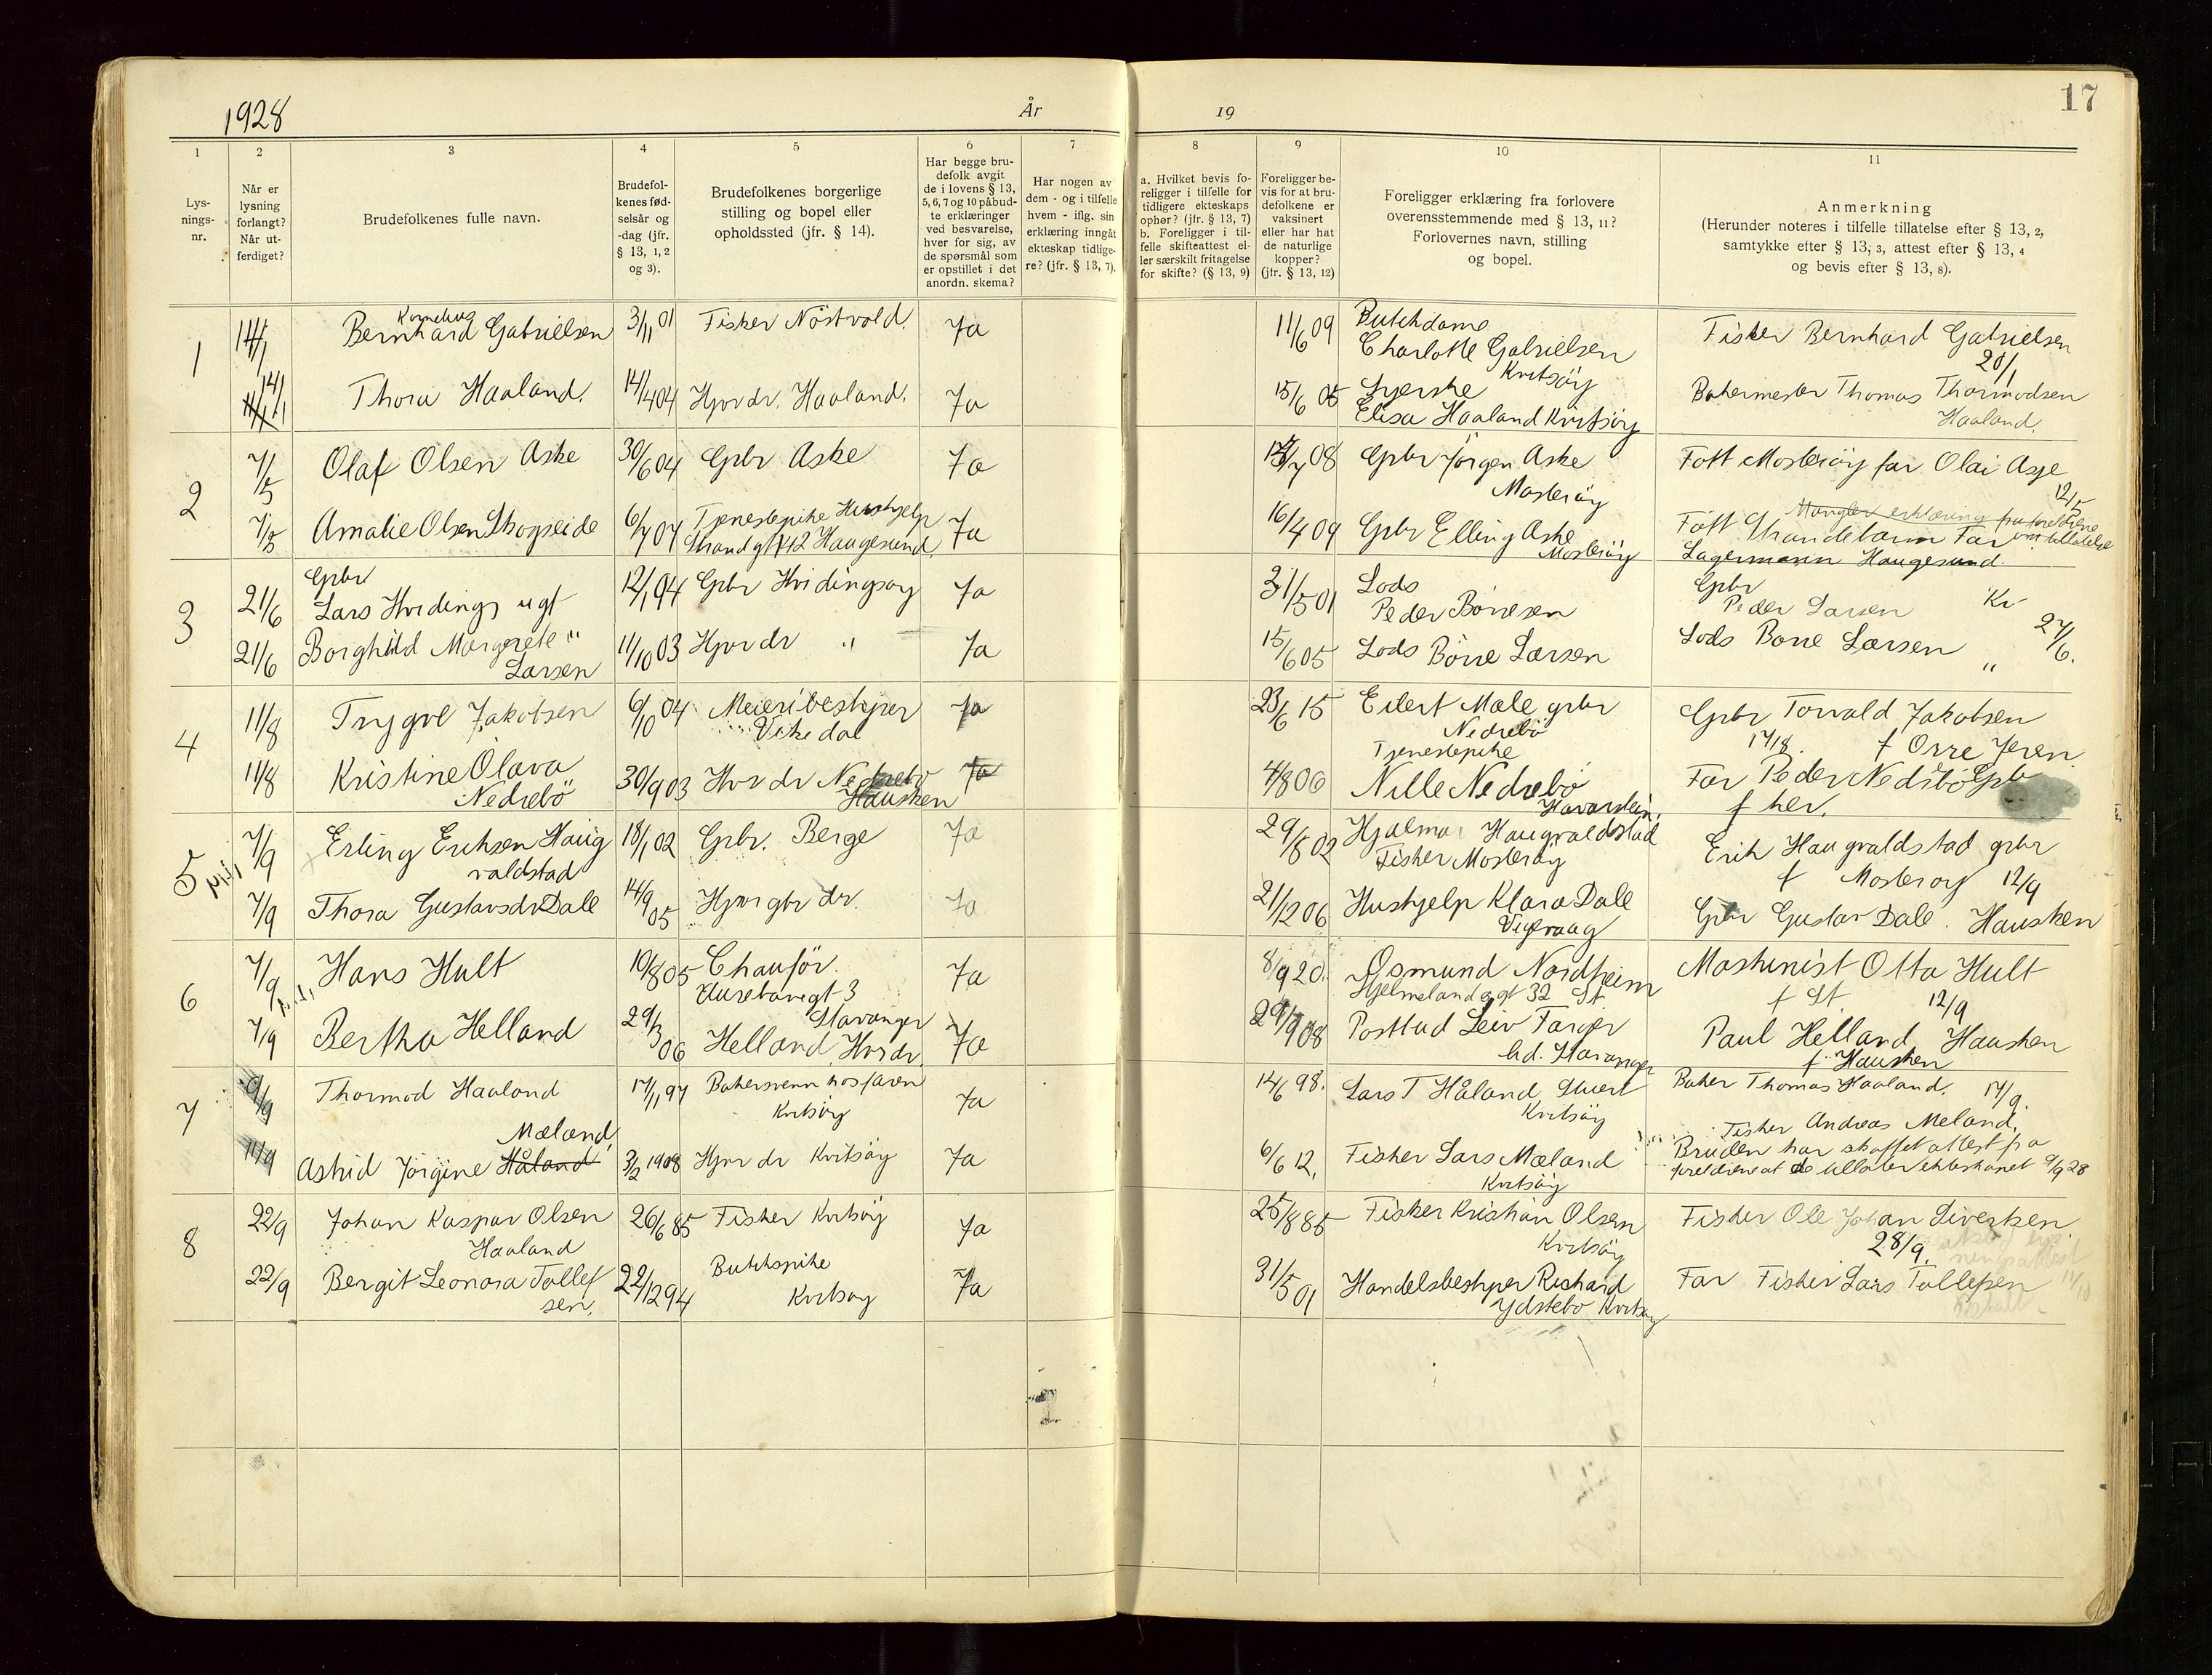 1928
År
19
17
1
2
3
4
5
6
7
8
9
10
11
Lys-
nings-
nr.
Når er
lysning
forlangt?
Når ut-
ferdiget?
Brudefolkenes fulle navn.
Brudefol-
kenes fød-
selsår og
-dag (jfr.
§ 13, 1, 2
og 3).
Brudefolkenes borgerlige
stilling og bopel eller
opholdssted (jfr. § 14).
Har begge bru-
defolk avgit
de i lovens § 13,
5, 6, 7 og 10 påbud-
te erklæringer
ved besvarelse,
hver for sig, av
de spørsmål som
er opstillet i det
anordn. skema?
Har nogen av
dem - og i tilfelle
hvem - iflg. sin
erklæring inngåt
ekteskap tidlige-
re? (jfr. § 13, 7).
a. Hvilket bevis fo-
religger i tilfelle for
tidligere ekteskaps
ophør? (jfr. § 13, 7)
b. Foreligger i til-
felle skifteattest el-
ler særskilt fritagelse
for skifte? (§ 13, 9)
Foreligger be-
vis for at bru-
defolkene er
vaksinert
eller har hat
de naturlige
kopper?
(jfr. § 13, 12)
Foreligger erklæring fra forlovere
overensstemmende med § 13, 11?
Forlovernes navn, stilling
og bopel.
Anmerkning
(Herunder noteres i tilfelle tillatelse efter § 13, 2,
samtykke efter § 13, 3, attest efter § 13, 4
og bevis efter § 13, 8).
1
Kornelius
Bernhard Gabrielsen 3/11 01 Fisker Nöstvold. Ja 11/6 09 Butikdame
Charlotte Gabrielsen
Kvitsöy
Fisker Bernhard Gabrielsen
20/1
14/1 Thora Haaland. 14/4 04 Hjvr dr. Haaland. Ja 15/6 05 Syerske
Elisa Haaland Kvitsöy
Bakermester Thomas Thormodsen
Haaland.
2 7/5 Olaf Olsen Aske 30/6 04 Gbr Aske Ja 08 Gbr Jörgen Aske
Mosteröy
Födt Mosteröy far Olai Aske
12/5
7/5 Amalie Olsen Skogseide 6/7 04 Tjenestepike Hushjelp
Strandgt 142 Haugesund. Ja 16/4 09 Gbr Elling Aske
Mosteröy
Mangler erklæring fra foreldrene
om tillatelse
Födt Strandebarm Far
Lagermann Haugesund.
3 21/6 Gbr
Lars Hvidings ugt 12/1 94 Gbr Hvidingsoy Ja 31/5 01 Lods
Peder Börresen
Gbr
Peder Larsen Kv
21/6 Borghild Margrete "
Larsen 11/10 03 Hjvr dr " Ja 15/6 05 Lods Börre Larsen
Lods Borre Larsen " 27/6.
4 11/8 Trygve Jakobsen 6/10 04 Meieribestyrer
Vikedal Ja 23/6 15 Eilert Mæle grbr
Nedrebö
Gbr Torvald Jakobsen
17/8. f Orre Jæren.
11/8 Kristine Olava
Nedrebö 30/9 03 Hvr dr Nedrebö
Hausken Ja 4/8 06 Tjenestepike
Nille Nedrebö
Havarstein.
Far Peder Nedrebö Gbr
f her.
5 7/9 Erling Eriksen Haug
valdstad 18/1 02 Gbr. Berge Ja 29/8 02 Hjalmar Haugvaldstad
Fisker Mosteröy
Erik Haugvaldstad grbr
f Mosteroy 12/9
7/9 Thora Gustavsdr Dale 14/9 05 Hjvr gbr dr. Ja 21/12 06 Hushjelp Klara Dale
Vigevaag
Gbr Gustav Dale. Hausken
6 7/9 Hans Hult 10/8 05 Chauför.
3
Stavanger Ja 8/9 20. Osmund Nordheim
Hjelmelandsgt 32 St
Maskinist Otto Hult
f St 12/9
7/9 Bertha Helland 29/3 06 Helland Hvr dr. Ja 29/9 08 Postbud Leiv
Stavanger
Paul Helland Hausken
f Hausken
7 9/9 Thormod Haaland 17/11 97 Bakersvenn hos faren
Kvitsöy Ja 14/6 98. Lars T Håland
Kvitsöy
Baker Thomas Haaland. 17/9.
11/9 Mæland
Astrid Jörgine Håland 3/2 1908 Hjvr dr Kvitsöy Ja 6/6 12. Fisker Lars Mæland
Kvitsöy
Fisker Andreas Meland.
Bruden har skaffet attest fra
foreldrene at de tillater ekteskapet 9/9 28
8 22/9 Johan Kaspar Olsen
Haaland 26/6 85 Fisker Kvitsöy Ja 25/8 85 Fisker Kristian Olsen
Kvitsöy
Fisker Ole Johan Sivertsen.
28/9.
22/9 Bergit Leonora Tollef
sen. 22/12 94 Butikspike
Kvitsoy Ja 31/5 01 Handelsbestyrer Richard
Ydstebö Kvitsoy
Far Fisker Lars Tollefsen